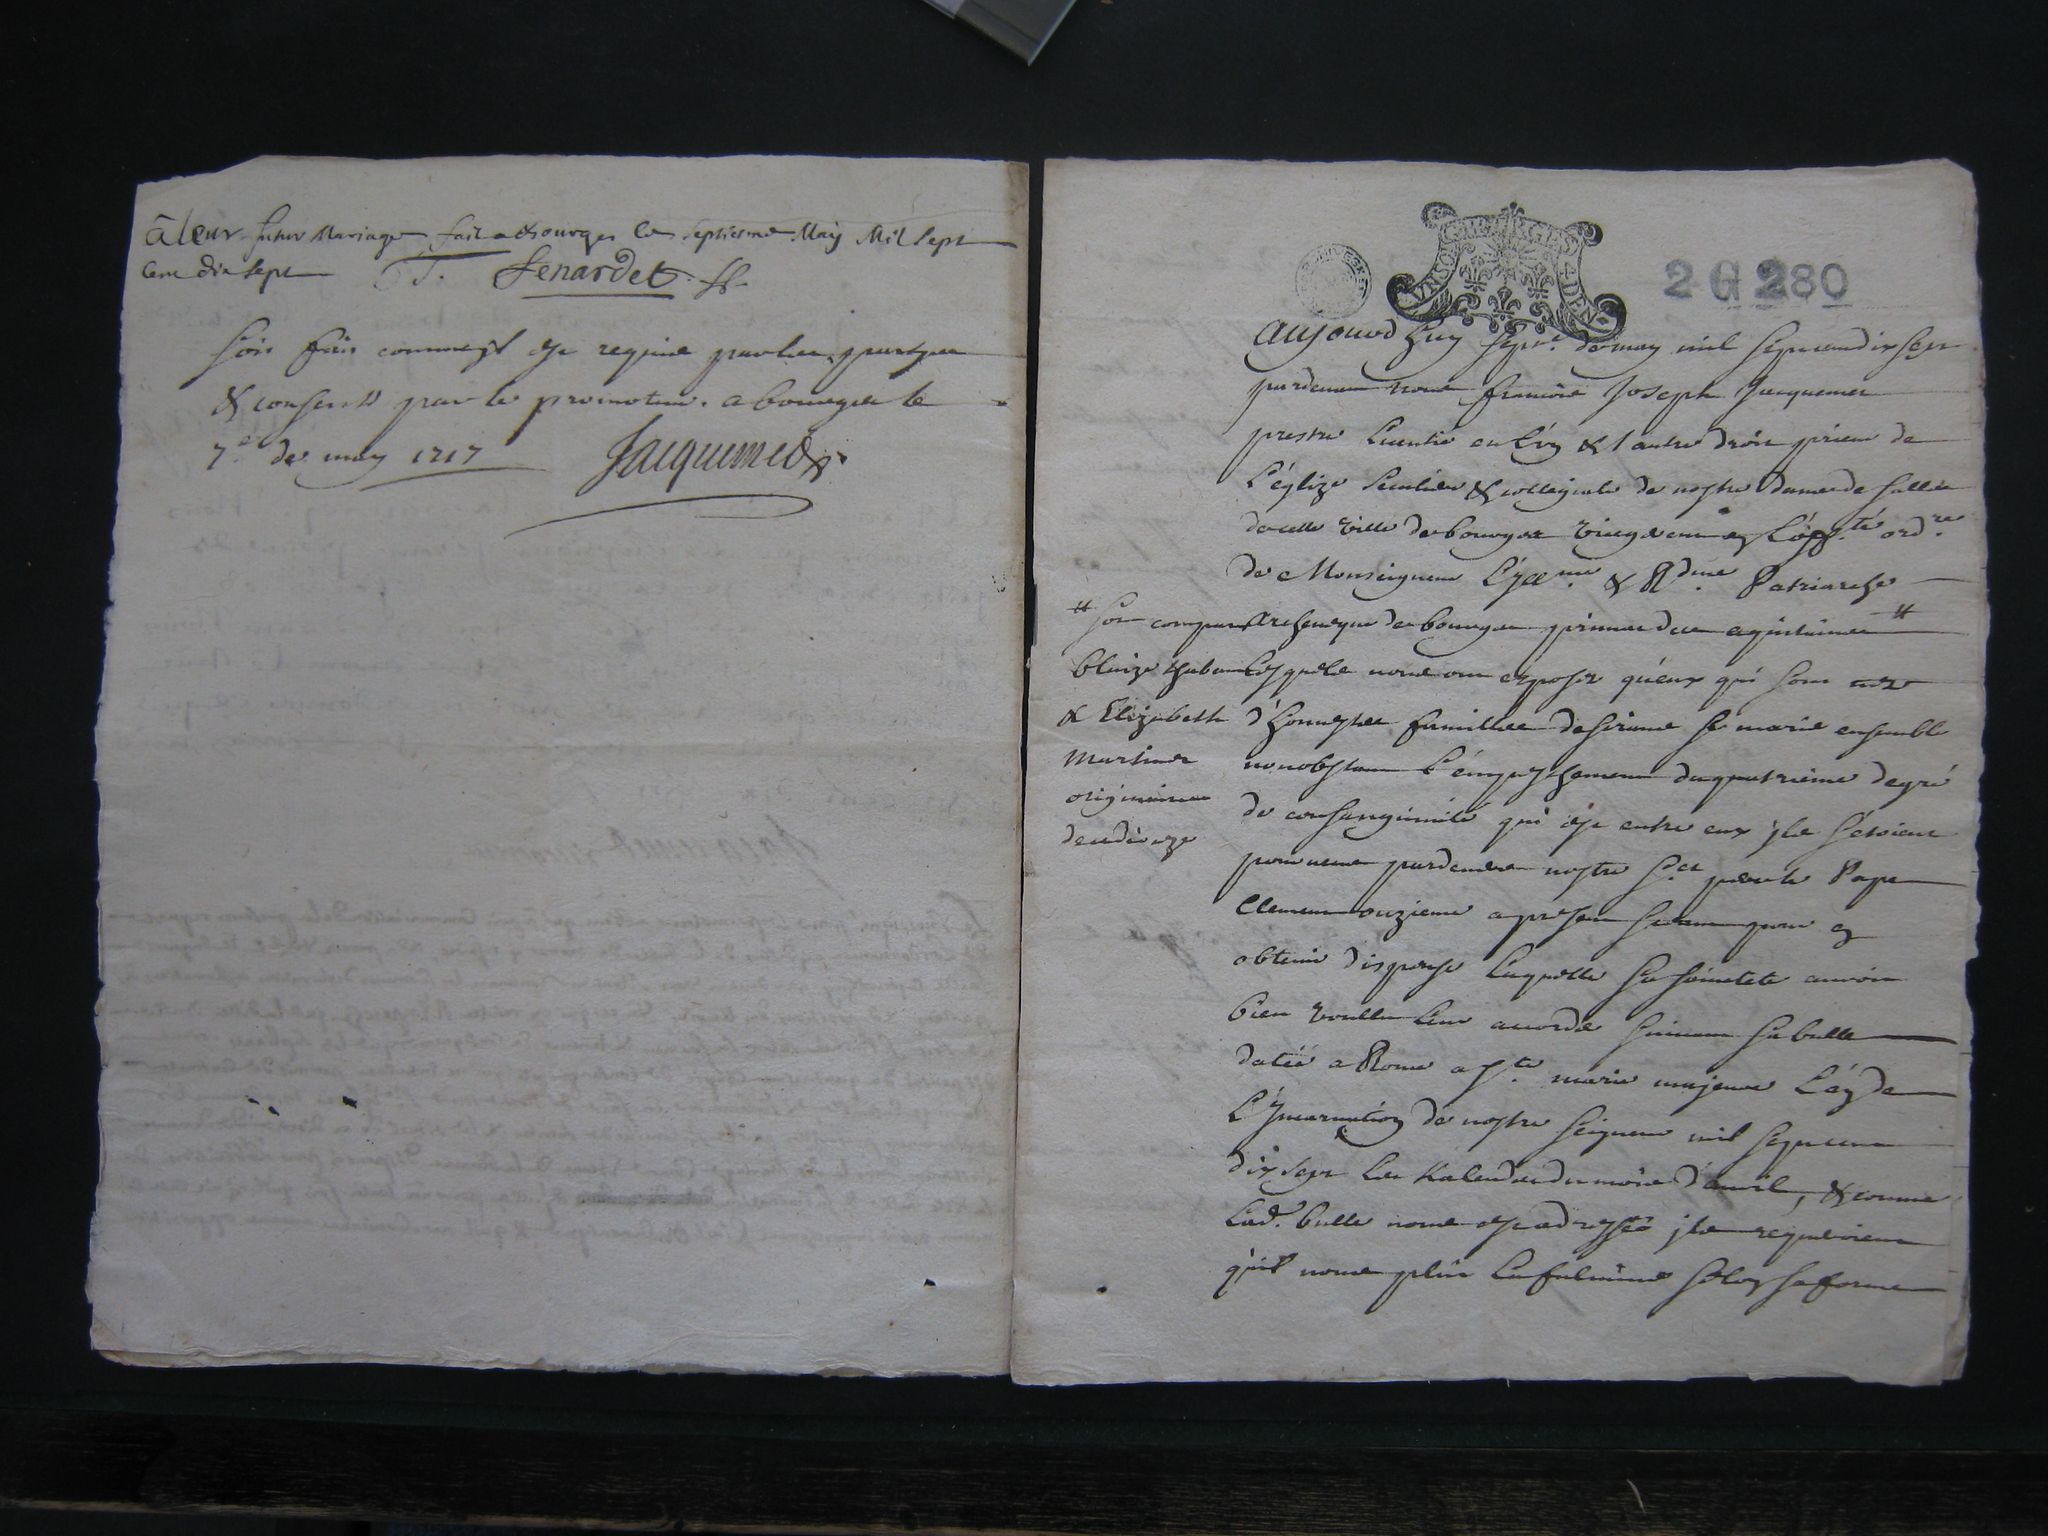 à leur futur Mariage fait a Bourges le septiesme May Mil sept
cent dix sept T. Senardet
soit fait comme il est requis par les parties
& consenty par le promoteur. a bourges le
7e de may 1717 Jacquemet
BOURGES
UN SOL 4 DEN
2 G 280
Aujourd'huy sept.e de may mil sept cent dix sept
pardevant nous françois Joseph Jacquemet
prestre licentié en l'un & l'autre droit prieur de
l'églize seculiere & collegiale de nostre dame de sallé
de cette ville de bourges vicegerent en l'off.té ord.re
de Monseigneur l'Ill.me & R.dme Patriarche
archevêque de bourges primat des aquitaines #
# sont comparus
blaize
& Elizabeth
Martinet
originaires
lesquels nous ont exposé qu'eux qui sont nez
d'honnestes familles desirant se marié ensemble
nonobstant l'empeschement du quatriéme degré
de consanguinité qui est entre eux ils s'étoient
pourveus pardevers nostre S.ct pere le Pape
Clement onzieme a present seant pour en
obtenir dispense laquelle sa sainteté auroit
bien voullu leur accordé suivant sa bulle
datéé a Rome a S.te marie majeure l'an de
l'Incarnation de nostre seigneur mil sept cent
dix sept les Kalendes du mois d'avril, & comme
lad. bulle nous est adressée ils requeroient
qu'il nous plût la fulminé selon sa forme